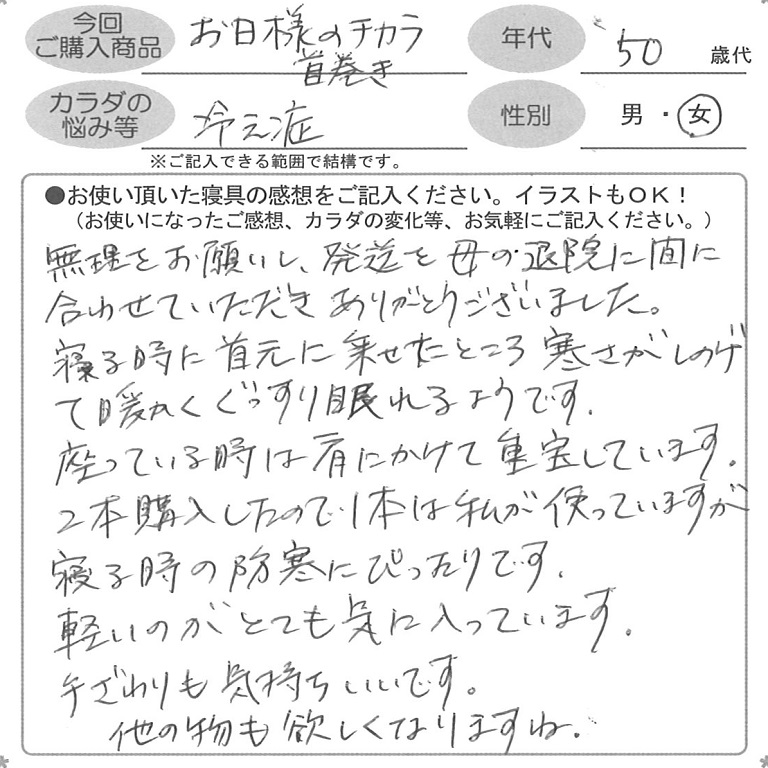 今回
ご購入商品
お日様のチカラ
首巻き
年代
50 歳代
カラダの
悩み等
冷え症
性別
男・女
※ご記入できる範囲で結構です。
●お使い頂いた寝具の感想をご記入ください。イラストもOK!
(お使いになったご感想、カラダの変化等、お気軽にご記入ください。)
無理をお願いし、発送を母の退院に間に
合わせていただきありがとうございました。
寝る時に首元に乗せたところ寒さがしのげ
て暖かくぐっすり眠れるようです。
座っている時は肩にかけて重宝しています。
2本購入したので1本は私が使っていますが
寝る時の防寒にぴったりです。
軽いのがとても気に入っています。
手ざわりも気持ちいいです。
他の物も欲しくなりますね。